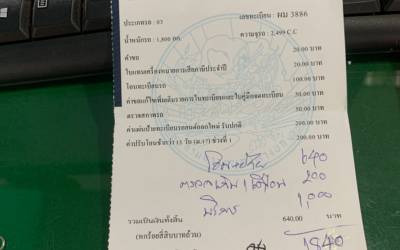 ประเภทรถ : 03 เลขทะเบียน : ผม 3886
น้ำหนักรถ : 1,800 กก. ความจุรถ : 2,499 C.C
ค่าขอ 20.00 บาท
ใบแทนเครื่องหมายการเสียภาษีประจำปี 20.00 บาท
โอนทะเบียนรถ 100.00 บาท
ค่าขอแก้ไขเพิ่มเติมรายการในทะเบียนและใบคู่มือจดทะเบียน 50.00 บาท
ตรวจสภาพรถ 50.00 บาท
ค่าแผ่นป้ายทะเบียนรถยนต์ออกใหม่ รับปกติ 200.00 บาท
ค่าปรับโอนช้ากว่า 15 วัน (ม.17) ช่วงที่ 1 200.00 บาท
640
200
บริการ 1,000
รวมเป็นเงินทั้งสิ้น 640.00 บาท
(หกร้อยสี่สิบบาทถ้วน) 1840